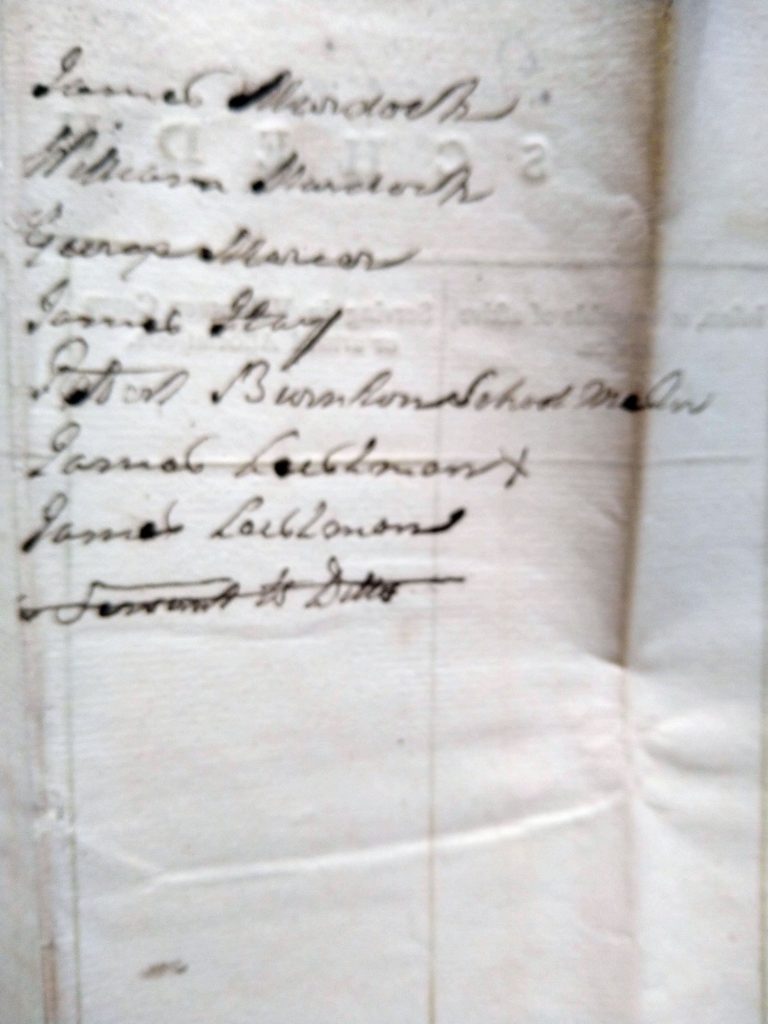 James Murdoch
William Murdoch
George Mercer
James Hay
Robert Burnton School
James Leishman x
James Leishman
Servant to Ditto